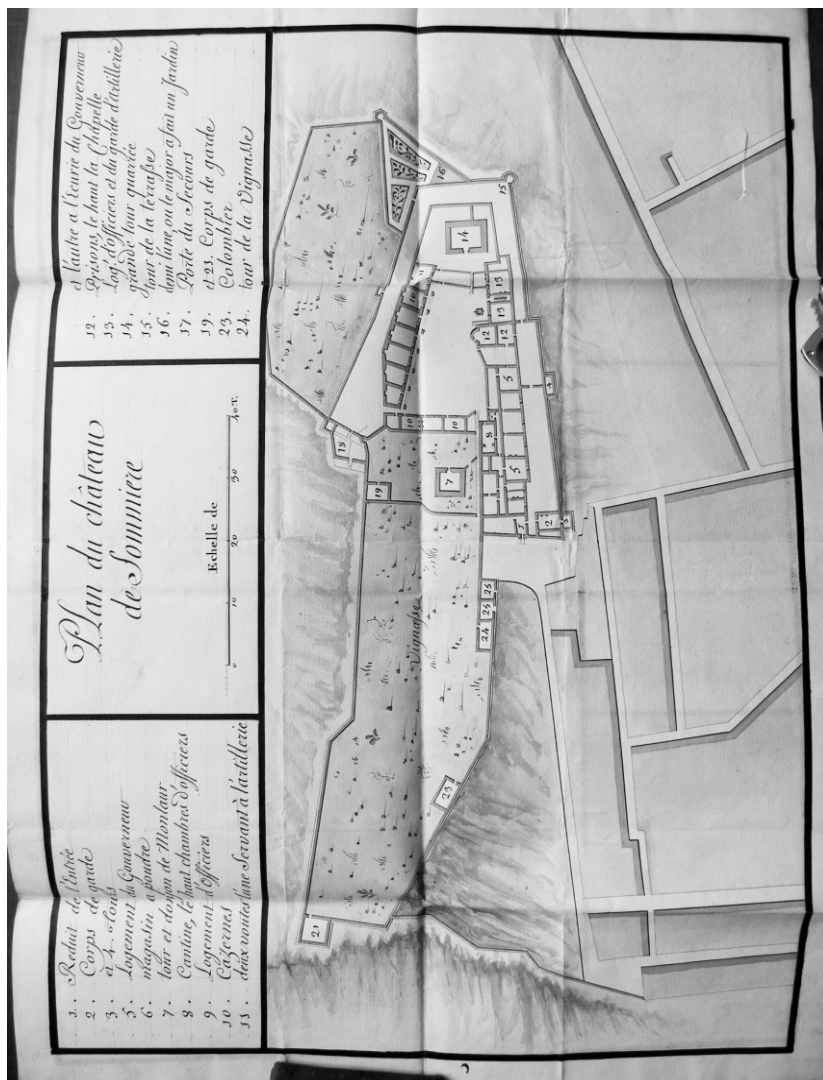 1. Reduit de l'Entrée
2. Corps de garde
3. et 4. fours
5. Logement du Gouverneur
6. magasin a poudre
7. tour et donjon de Montlaur
8. Cantine, le haut chambres d'officiers
9. Logement d'Officiers
10. Cazernes
11. deux voutes l'une Servant à l'artillerie
Plan du château
de Sommiere
Echelle de
0 10 20 30 40 T.
et l'autre a l'Ecurie du Gouverneur
12. Prisons, le haut la Chapelle
13. Log.^t d'officiers et du garde d'artillerie
14. grande tour quarrée
15. tour de la terrasse
16. demi lune, ou le major a fait un Jardin
17. Porte du Secours
19. et 21. Corps de garde
23. Colombier
24. tour de la Vignasse
21
23
24
25
25
Vignasse
19
18
7
10
10
10
1
2
3
5
8
5
4
12
12
13
13
11
14
15
16